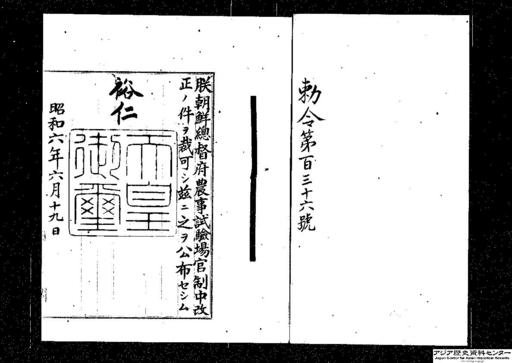 勅令第百三十六號
朕朝鮮總督府農事試驗場官制中改
正ノ件ヲ裁可シ茲ニ之ヲ公布セシム
裕仁
天皇
御璽
昭和六年六月十九日
アジア歴史資料センター
Japan Center for Asian Historical Records